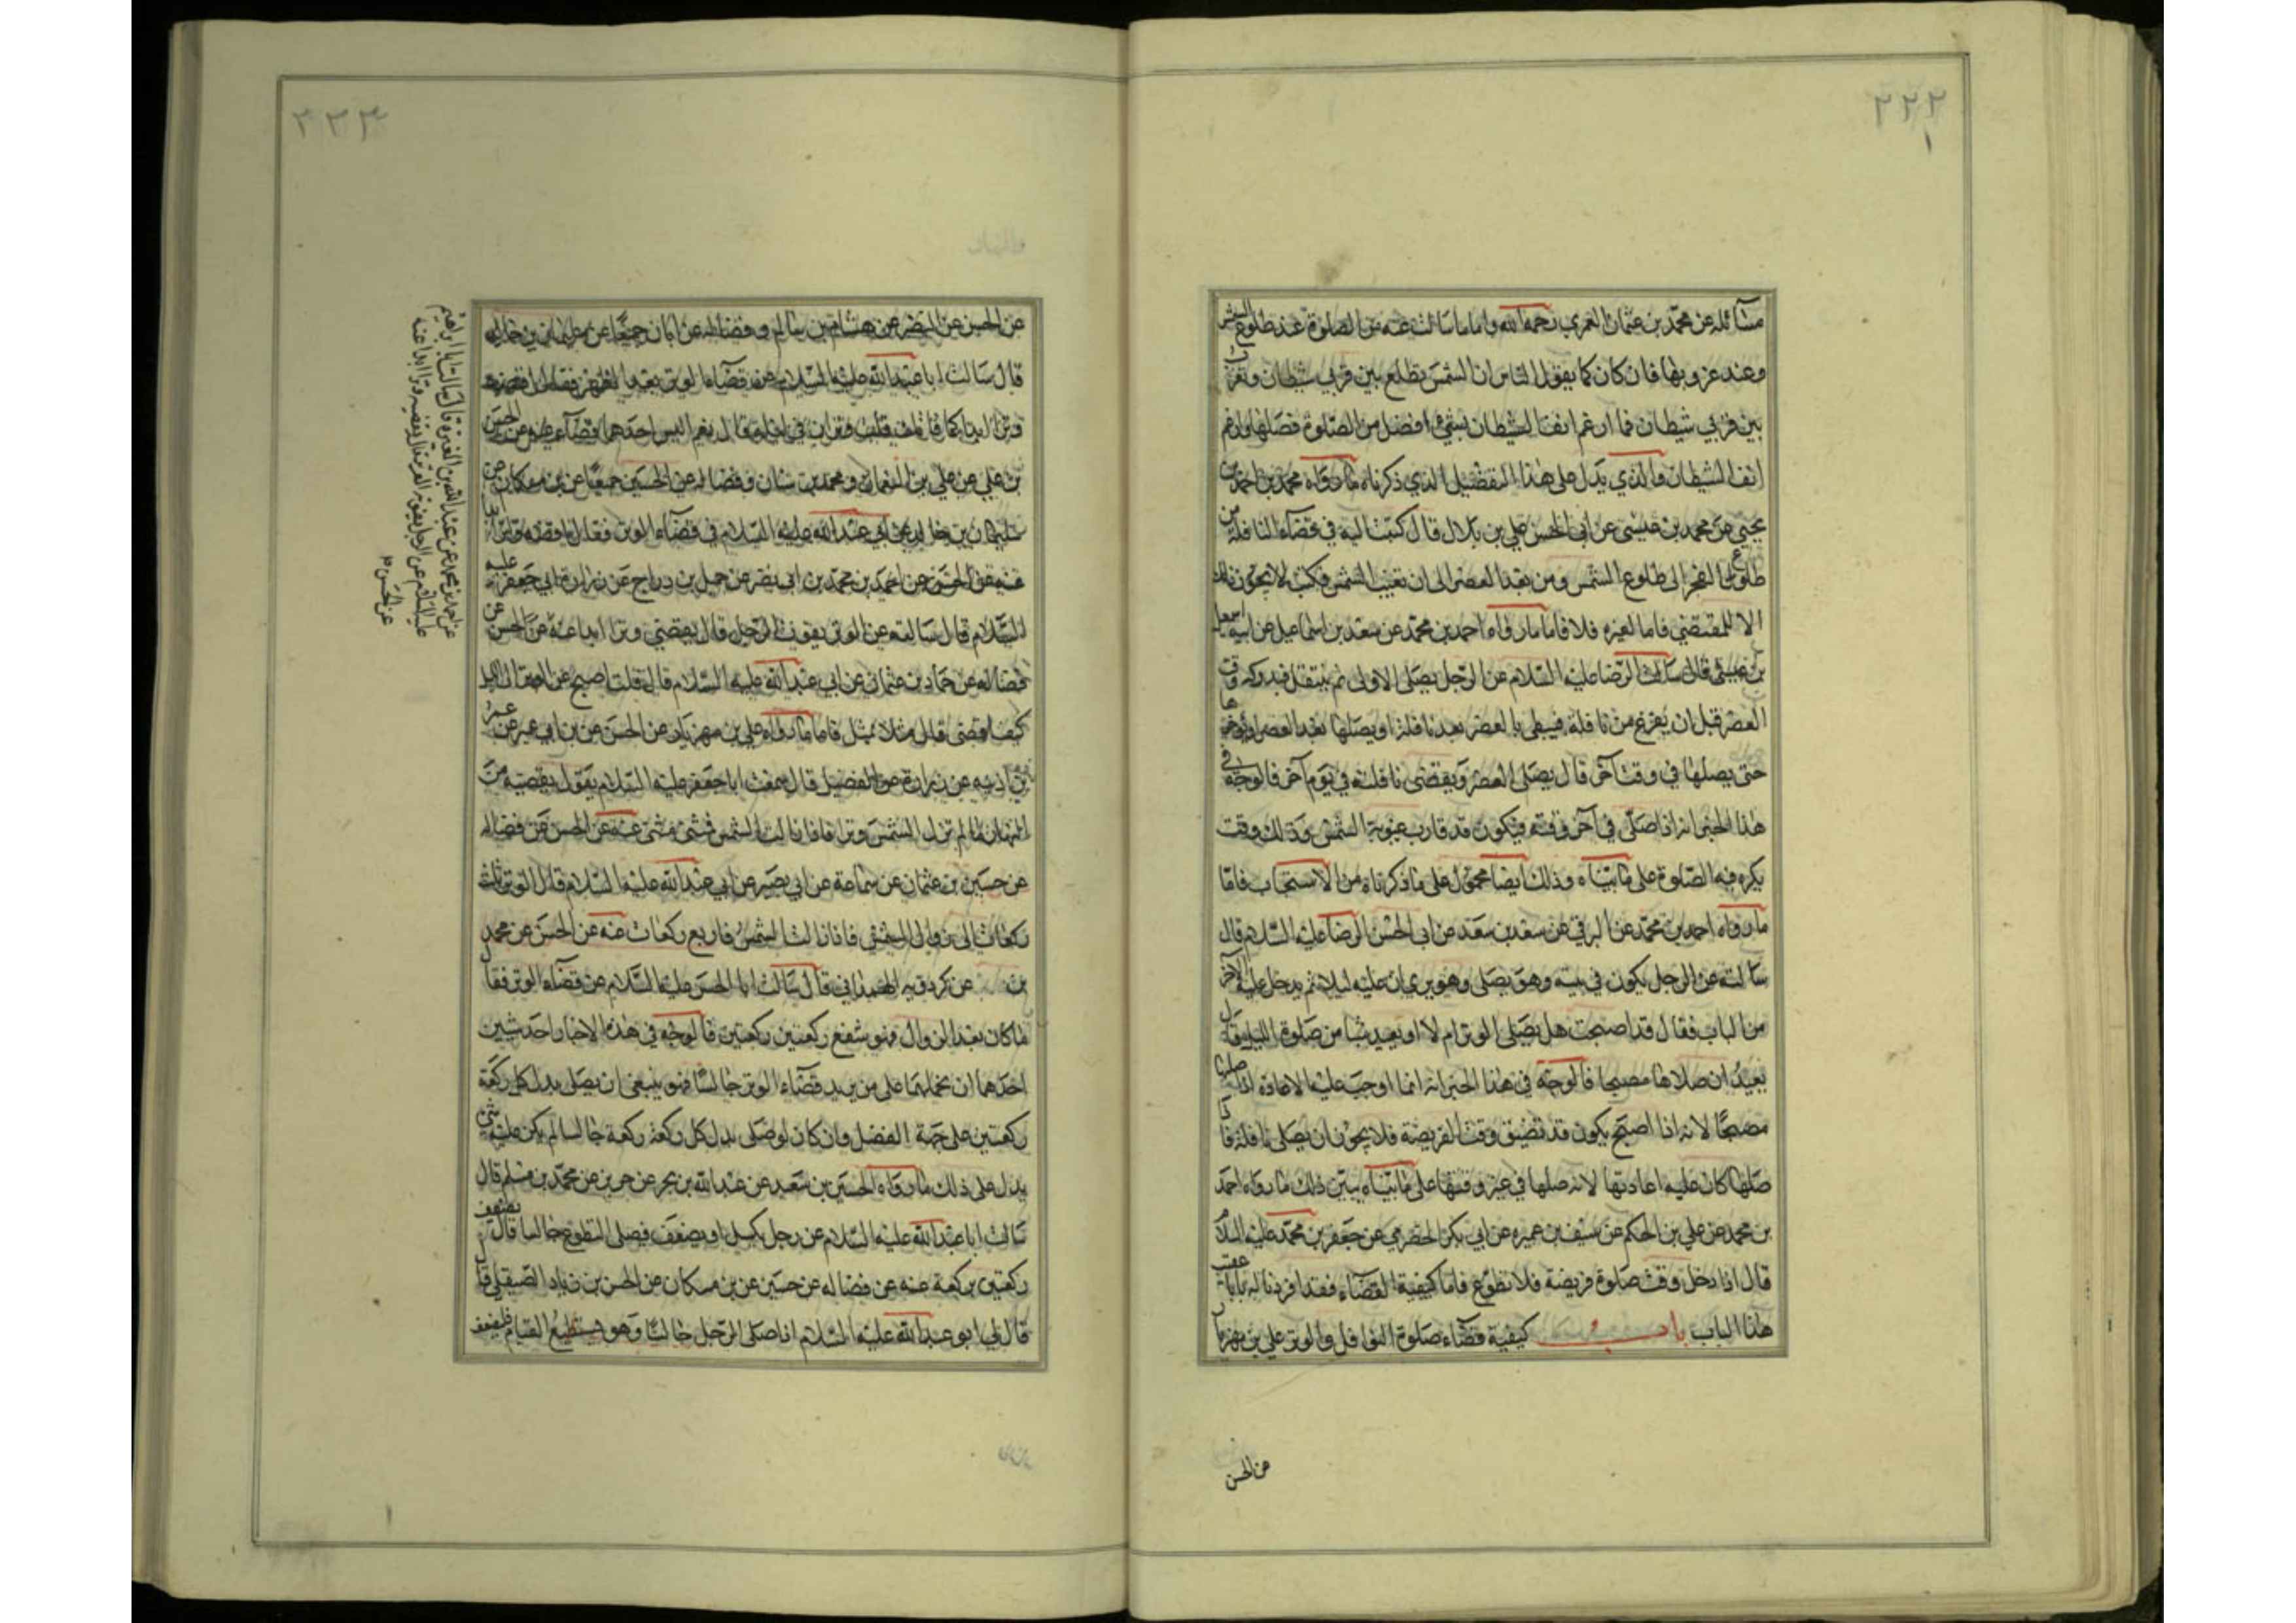 ٢٢٢
مسائله عن محمد بن عثمان العمري رحمه الله واما ما سالت عنه من الصلوة عند طلوع الشمس
وعند غروبها فان كان كما يقول الناس ان الشمس تطلع بين قرني شيطان وتغرب
بين قرني شيطان فما ارغم انف الشيطان بشيء افضل من الصلوة فصلها وارغم
انف الشيطان والذي يدل على هذا التفصيل الذي ذكرناه ما رواه محمد بن احمد بن
يحيى عن محمد بن عيسى عن ابي الحسن علي بن بلال قال كتبت اليه في قضاء النافلة من
طلوع الفجر الى طلوع الشمس ومن بعد العصر الى ان تغيب الشمس فكتب لا يجوز ذلك
الا للمقتضي فاما لغيره فلا فاما ما رواه احمد بن محمد عن سعد بن اسماعيل عن ابيه اسمعيل
بن عيسى قال سالت الرضا عليه السلام عن الرجل يصلي الاولى ثم يتنفل فيدركه وقت
العصر قبل ان يفرغ من نافلة فيبطي بالعصر بعد نافلة او يصلها بعد العصر او يؤخرها
حتى يصلها في وقت آخر قال يصلي العصر ويقضي نافلته في يوم آخر فالوجه في
هذا الخبر انه اذا صلى في آخر وقته فيكون قد قارب غيبوبة الشمس وذلك وقت
يكره فيه الصلوة على ما بيناه وذلك ايضا محمول على ما ذكرناه من الاستحباب فاما
ما رواه احمد بن محمد عن البرقي عن سعد بن سعد عن ابي الحسن الرضا عليه السلام قال
سالته عن الرجل يكون في بيته وهو يصلي وهو يرى ان عليه ليلا ثم يدخل عليه الآخر
من الباب فقال قد اصبحت هل يصلي الوتر ام لا او يعيد شيا من صلوة الليل قال
يعيد ان صلاها مصبحا فالوجه في هذا الخبر انه انما اوجب عليه الاعادة اذا صليها
مصبحا لانه اذا اصبح يكون قد تضيق وقت الفريضة فلا يجوز ان يصلي نافلة فاذا
صلها كان عليه اعادتها لانه صلها في غير وقتها على ما بيناه يبين ذلك ما رواه احمد
بن محمد عن علي بن الحكم عن سيف بن عميره عن ابي بكر الحضرمي عن جعفر بن محمد عليه السلام
قال اذا دخل وقت صلوة فريضة فلا تطوع فاما كيفية القضاء فقد افردنا له بابا عقيب
هذا الباب باب كيفية قضاء صلوة النوافل والوتر علي بن مهزيار
عن الحسن
٢٢٣
عن الحسن عن النضر عن هشام بن سالم وفضاله عن ابان جميعا عن سليمان بن خالد
قال سالت ابا عبد الله عليه السلام عن قضاء الوتر بعد الظهر فقال اقضه
وترا ابدا كما فاتك قلت وتران في ليلة قال نعم اليس احدهما قضاء عنه عن الحسن
بن علي عن علي بن النعمان ومحمد بن سنان وفضاله عن الحسين جميعا عن بن مسكان عن
سليمان بن خالد عن ابي عبد الله عليه السلام في قضاء الوتر فقال اقضه وترا ابدا
عنه عن الحسن عن احمد بن محمد بن ابي نصر عن جميل بن دراج عن زرارة عن ابي جعفر عليه
السلام قال سالته عن الوتر يفوت الرجل قال يقضي وترا ابدا عنه عن الحسن عن
فضاله عن حماد بن عثمان عن ابي عبد الله عليه السلام قال قلت اصبح عن الوتر الى الليل
كيف اقضي قال مثلا بمثل فاما ما رواه علي بن مهزيار عن الحسن عن بن ابي عمير عن عمر
بن اذينه عن زرارة عن الفضيل قال سمعت ابا جعفر عليه السلام يقول يقضيه من
النهار ما لم تزل الشمس وترا فاذا زالت الشمس فمثنى مثنى عنه عن الحسن عن فضاله
عن حسين بن عثمان عن سماعة عن ابي بصير عن ابي عبد الله عليه السلام قال الوتر ثلث
ركعات الى زوال الشمس فاذا زالت الشمس فاربع ركعات عنه عن الحسن عن محمد
بن عن كردويه الهمذاني قال سالت ابا الحسن عليه السلام عن قضاء الوتر فقال
ما كان بعد الزوال فهو شفع ركعتين ركعتين فالوجه في هذه الاخبار احد شيئين
احدهما ان نحملها على من يريد قضاء الوتر جالسا فهو ينبغي ان يصلي بدل كل ركعة
ركعتين على جهة الفضل وان كان لو صلى بدل كل ركعة ركعة جالسا لم يكن عليه شيء
يدل على ذلك ما رواه الحسين بن سعيد عن عبد الله بن بحر عن حريز عن محمد بن مسلم قال
سالت ابا عبد الله عليه السلام عن رجل يكسل او يضعف فيصلي التطوع جالسا قال يضعف
ركعتين بركعة عنه عن فضاله عن حسين عن بن مسكان عن الحسن بن زياد الصيقل قال
قال لي ابو عبد الله عليه السلام اذا صلى الرجل جالسا وهو يستطيع القيام فليضعف
عنه عن محمد عن عبد الله بن المغيرة قال سالت ابا ابراهيم
عليه السلم عن الرجل يفوته الوتر قال يقضيه وترا ابدا عنه
عن الحسن